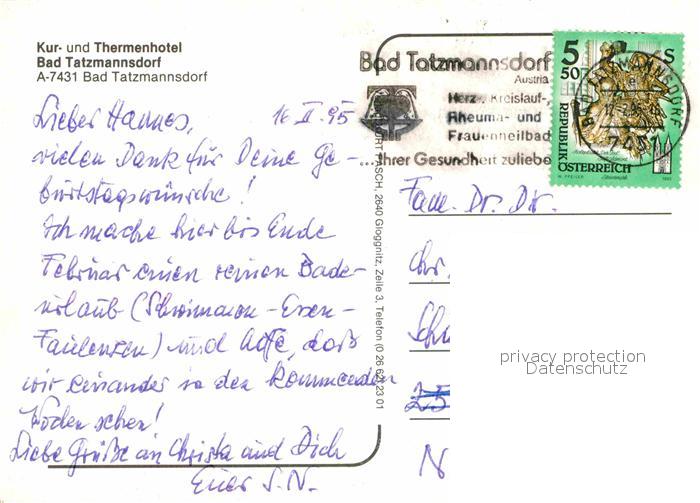 Kur- und Thermenhotel
Bad Tatzmannsdorf
A-7431 Bad Tatzmannsdorf
Lieber Hannes, 16 II. 95
vielen Dank für Deine Ge-
burtstagswünsche!
Ich mache hier bis Ende
Februar einen reinen Bade-
urlaub (Schwimmen - Essen -
Faulenzen) und hoffe, daß
wir einander in den kommenden
Wochen sehen!
Liebe Grüße an Christa und Dich
Euer S.N.
Bad Tatzmannsdorf
Austria
Herz-, Kreislauf-,
Rheuma- und
Frauenheilbad
...Ihrer Gesundheit zuliebe
5 50 S
REPUBLIK
ÖSTERREICH
BAD TATZMANNSDORF
2640 Gloggnitz, Zeile 3, Telefon (0 26 62) 23 01
Fam. Dr. Dir.
Chr.
Schu
25
N
privacy protection
Datenschutz